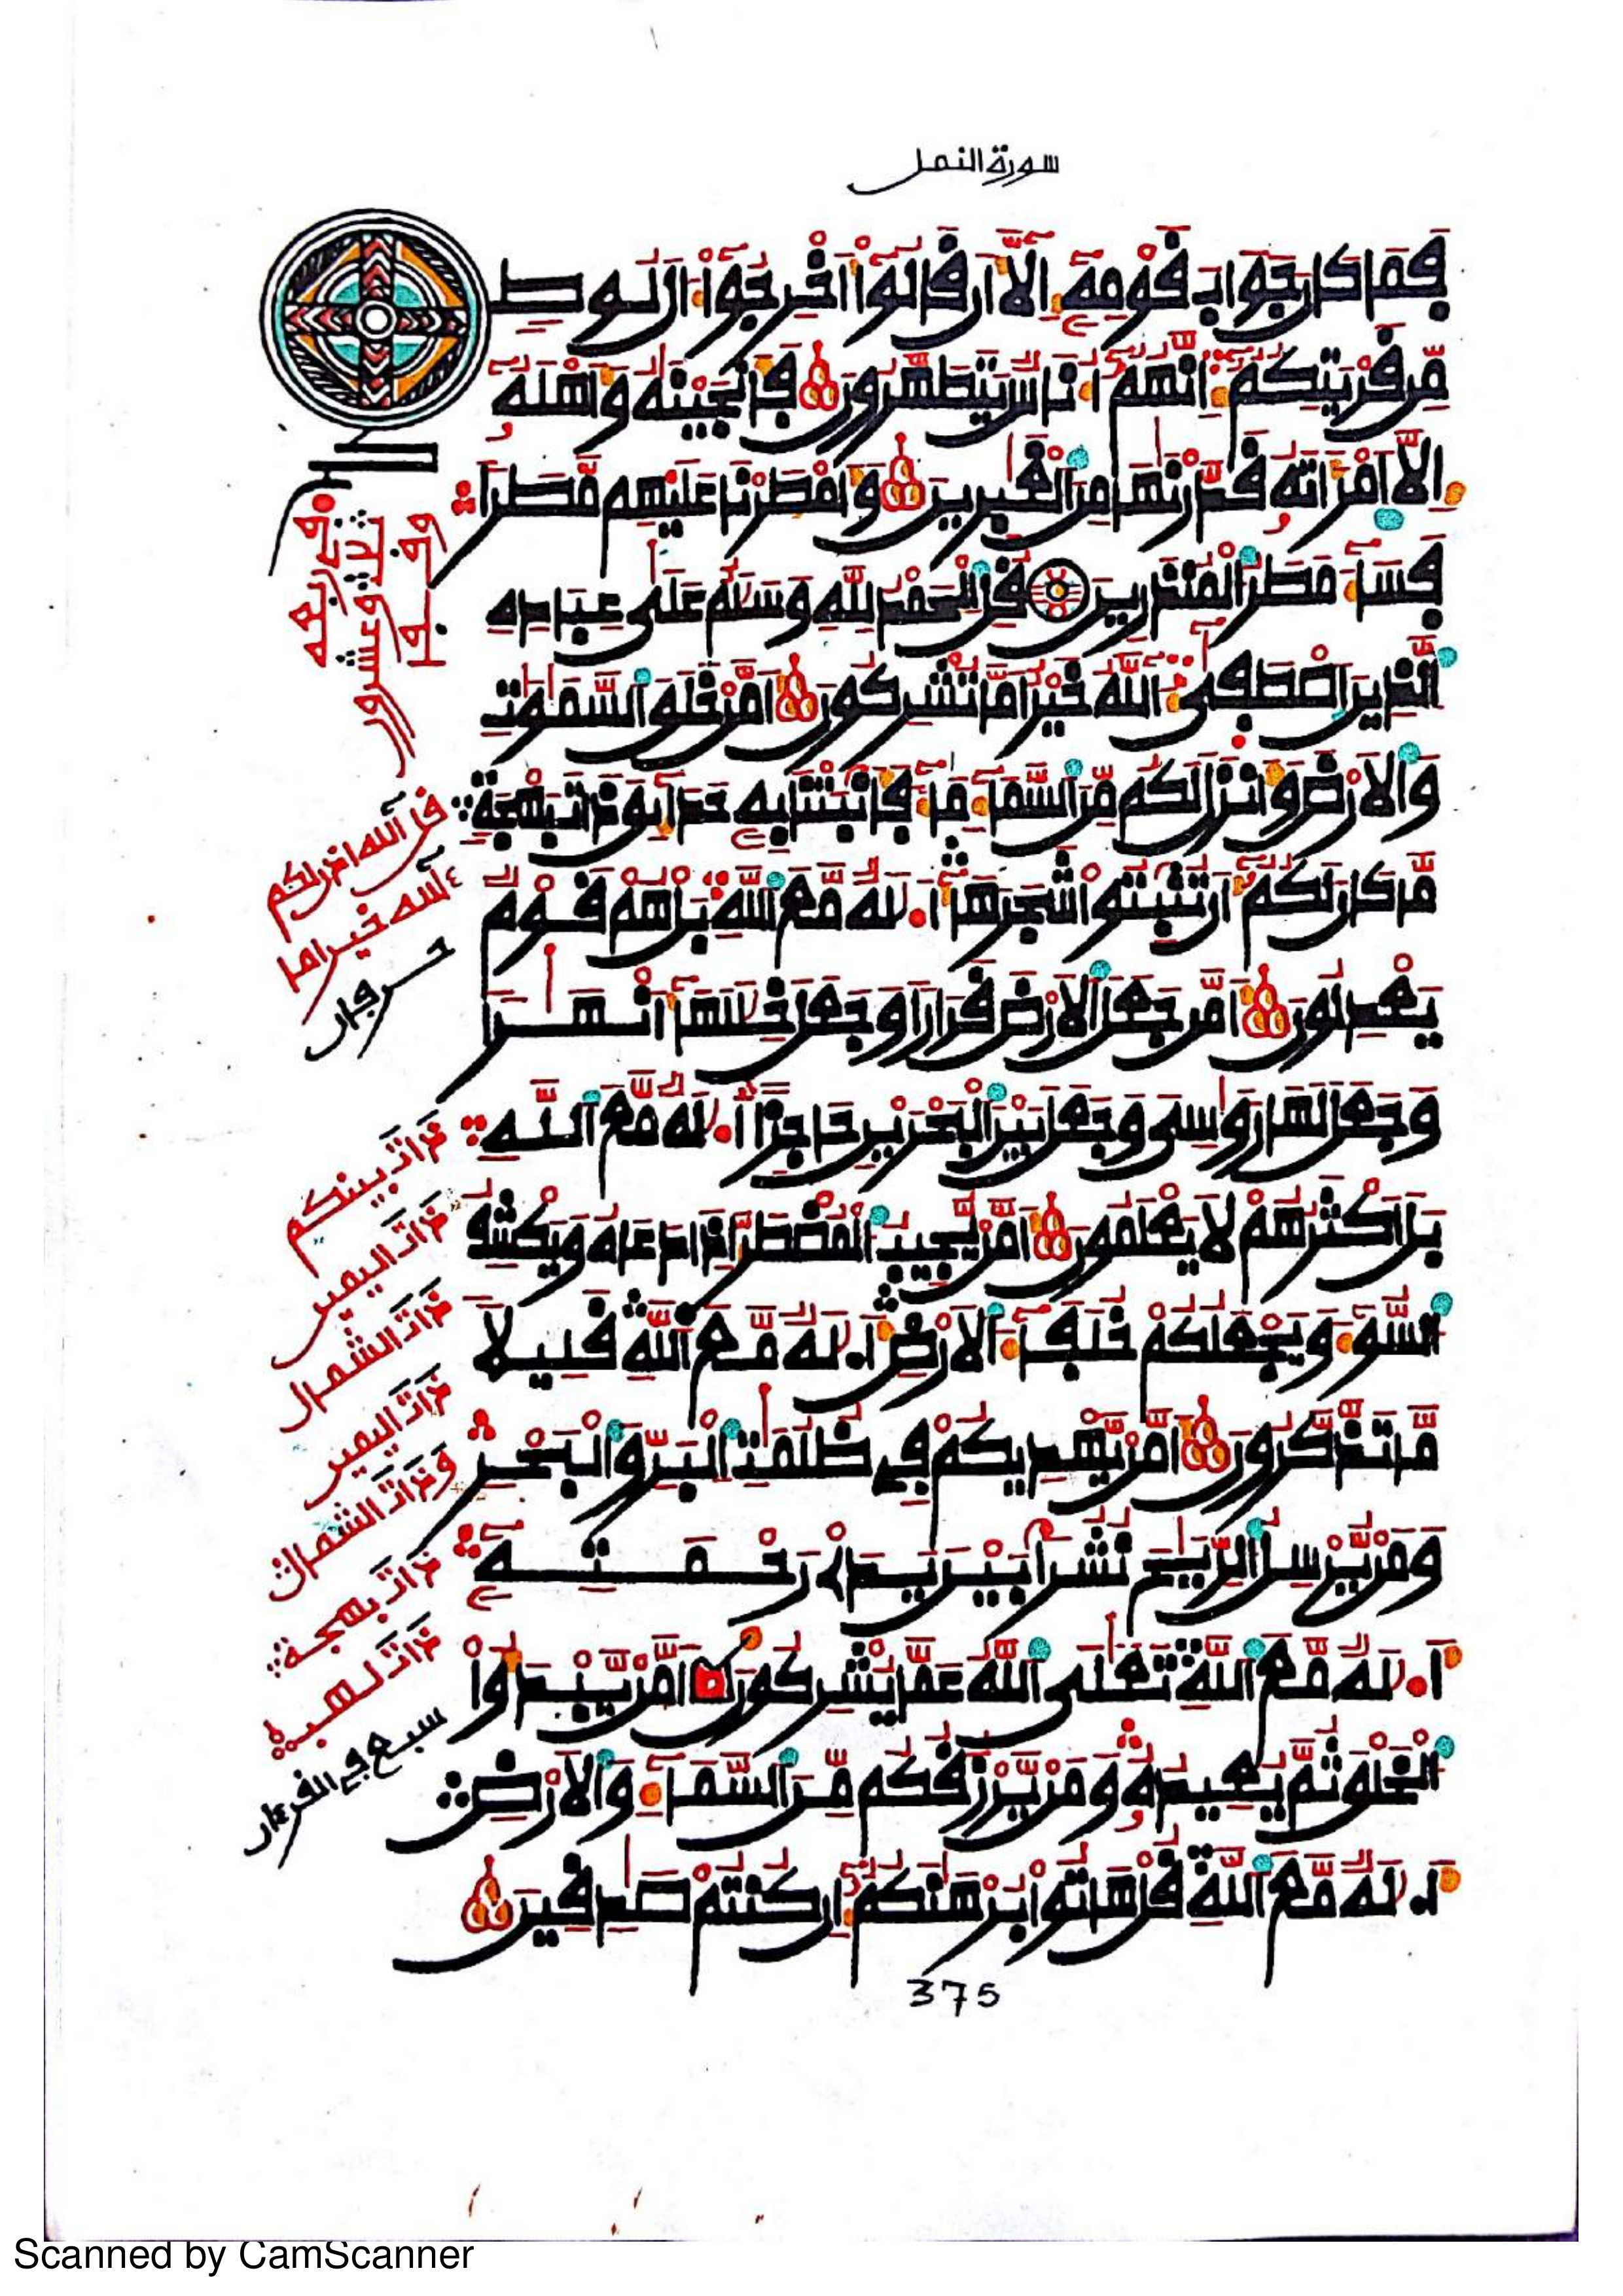 سورة النمل
فَمَا كَانَ جَوَابَ قَوْمِهِ إِلَّا أَن قَالُوا أَخْرِجُوا ءَالَ لُوطٍ
مِّن قَرْيَتِكُمُ إِنَّهُمُ أُنَاسٌ يَتَطَهَّرُونَ فَأَنجَيْنَهُ وَأَهْلَهُ
إِلَّا امْرَأَتَهُ قَدَّرْنَهَا مِنَ الْغَبِرِينَ وَأَمْطَرْنَا عَلَيْهِم مَّطَرًا
فَسَاءَ مَطَرُ الْمُنذَرِينَ قُلِ الْحَمْدُ لِلَّهِ وَسَلَمٌ عَلَى عِبَادِهِ
الَّذِينَ اصْطَفَى ءَاللَّهُ خَيْرٌ أَمَّا تُشْرِكُونَ أَمَّنْ خَلَقَ السَّمَوَتِ
وَالْأَرْضَ وَأَنزَلَ لَكُم مِّنَ السَّمَاءِ مَاءً فَأَنبَتْنَا بِهِ حَدَائِقَ ذَاتَ بَهْجَةٍ
مَّا كَانَ لَكُمُ أَن تُنبِتُوا شَجَرَهَا أَ.لَهٌ مَّعَ اللَّهِ بَلْ هُمْ قَوْمٌ
يَعْدِلُونَ أَمَّن جَعَلَ الْأَرْضَ قَرَارًا وَجَعَلَ خِلَلَهَا أَنْهَرًا
وَجَعَلَ لَهَا رَوَسِيَ وَجَعَلَ بَيْنَ الْبَحْرَيْنِ حَاجِزًا أَ.لَهٌ مَّعَ اللَّهِ
بَلْ أَكْثَرُهُمْ لَا يَعْلَمُونَ أَمَّن يُجِيبُ الْمُضْطَرَّ إِذَا دَعَاهُ وَيَكْشِفُ
السُّوءَ وَيَجْعَلُكُمْ خُلَفَاءَ الْأَرْضِ أَ.لَهٌ مَّعَ اللَّهِ قَلِيلًا
مَّا تَذَّكَّرُونَ أَمَّن يَهْدِيكُمْ فِي ظُلُمَتِ الْبَرِّ وَالْبَحْرِ
وَمَن يُرْسِلُ الرِّيَحَ نُشُرًا بَيْنَ يَدَيْ رَحْمَتِهِ
أَ.لَهٌ مَّعَ اللَّهِ تَعَلَى اللَّهُ عَمَّا يُشْرِكُونَ أَمَّن يَبْدَؤُا
الْخَلْقَ ثُمَّ يُعِيدُهُ وَمَن يَرْزُقُكُم مِّنَ السَّمَاءِ وَالْأَرْضِ
أَ.لَهٌ مَّعَ اللَّهِ قُلْ هَاتُوا بُرْهَنَكُمُ إِن كُنتُمْ صَدِقِينَ
وقف
ثلاث وعشرون
في ربعه
قل آلله اذن لكم
ءآلله خير اما
حرفان
ذات بينكم
ذات اليمين
ذات الشمال
ذات اليمين
وذات الشمال
ذات بهجة
ذات لهب
سبع في القرءان
375
Scanned by CamScanner